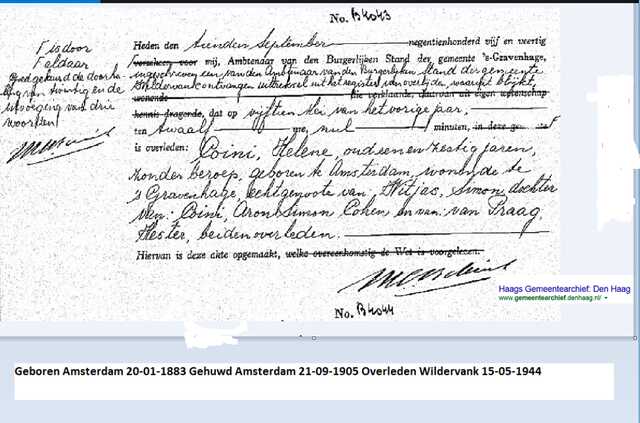 No. B4043
Heden den tienden September negentienhonderd vijf en veertig
verscheen voor mij, Ambtenaar van den Burgerlijken Stand der gemeente 's-Gravenhage,
ingeschreven een van den Ambtenaar van den Burgerlijken Stand der gemeente
Wildervank ontvangen uittreksel uit het register van overlijden, waaruit blijkt
wonende die verklaarde, daarvan uit eigen wetenschap
kennis dragende, dat op vijftien Mei van het vorige jaar,
ten twaalf ure, nul minuten, in deze
is overleden: Coini, Helene, oud een en zestig jaren,
zonder beroep, geboren te Amsterdam, wonende te
's Gravenhage, echtgenoote van Witjas, Simon, dochter
van: Coini, Aron Simon Cohen en van: van Praag,
Hester, beiden overleden.
Hiervan is deze akte opgemaakt, welke overeenkomstig de Wet is voorgelezen.
Goedgekeurd de doorha-
ling van twintig en de
invoeging van drie
woorden!
No. B4044
Haags Gemeentearchief: Den Haag
www.gemeentearchief.denhaag.nl/
Geboren Amsterdam 20-01-1883 Gehuwd Amsterdam 21-09-1905 Overleden Wildervank 15-05-1944